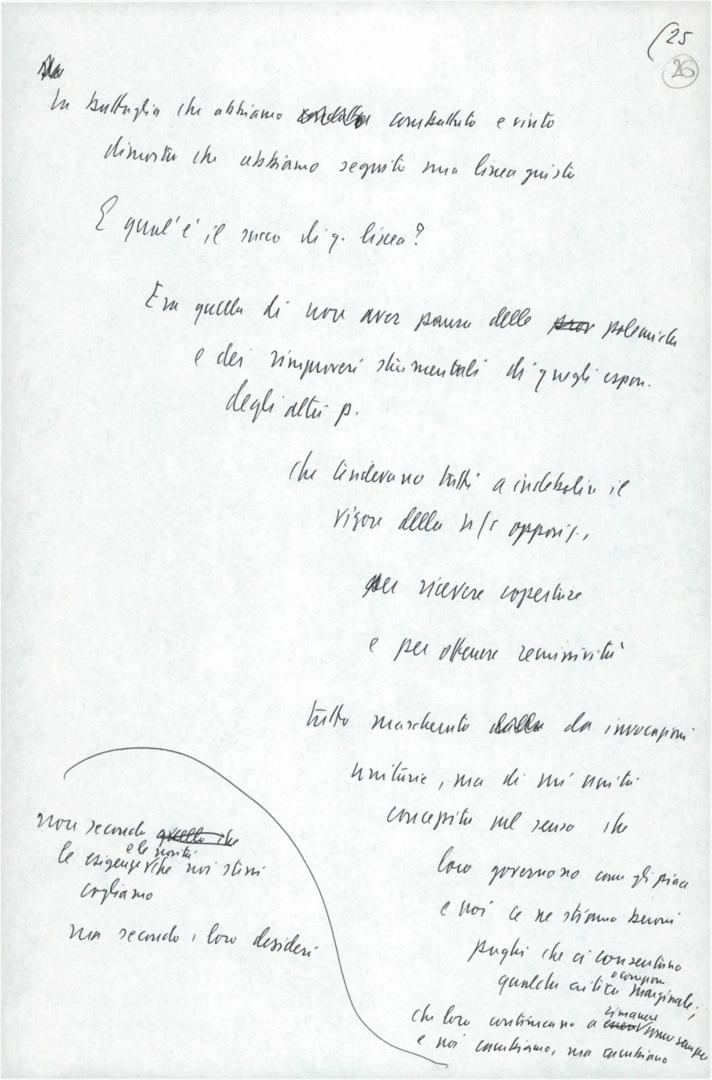 (25
26
La battaglia che abbiamo combattuto e vinto
dimostra che abbiamo seguito una linea giusta
E qual'è il succo di q. linea?
Era quella di non aver paura delle polemiche
e dei rimproveri strumentali di quegli espon.
degli altri p.
che tendevano tutti a indebolire il
vigore della n/s opposiz.,
per ricevere coperture
e per ottenere remissività
tutto mascherato da invocazioni
unitarie, ma di un'unità
concepita nel senso che
loro governano come gli piace
e noi ce ne stiamo buoni
paghi che ci consentano
qualche critica o
marginale;
che loro continuano a rimanere sempre
e noi cambiamo, ma cambiamo
non secondo quello che
le esigenze e le novità che noi stessi
cogliamo
ma secondo i loro desideri